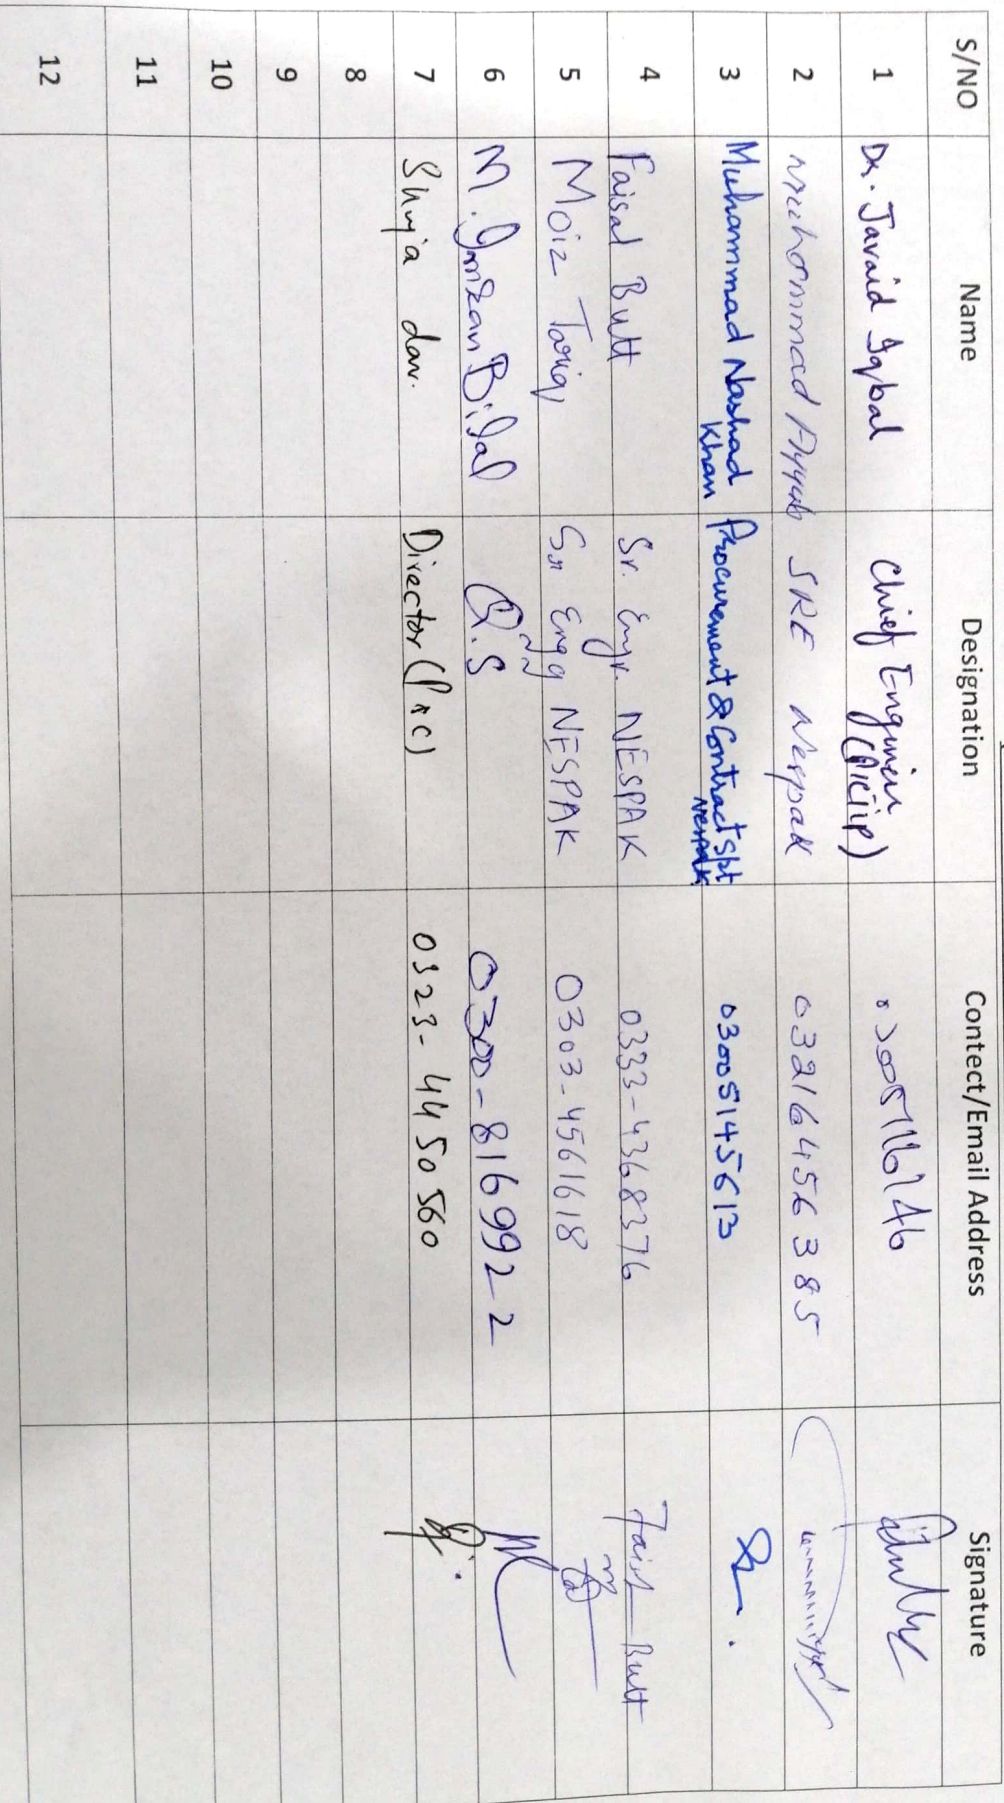 S/NO Name Designation Contect/Email Address Signature
1 Dr. Javaid Iqbal Chief Engineer
2 Muhammad Ayyub SRE Nespak 03216456385
3 Muhammad Nashad Khan Procurement & Contract Spt Nespak 03005145613
4 Faisal Butt Sr. Engr. NESPAK 0333-4368376 Faisal Butt
5 Moiz Tariq Sr Engg NESPAK 0303-4561618
6 M. Imran Bilal Q.S 0300-8169922
7 Shuja dar. Director (P&C) 0323-4450560
8
9
10
11
12